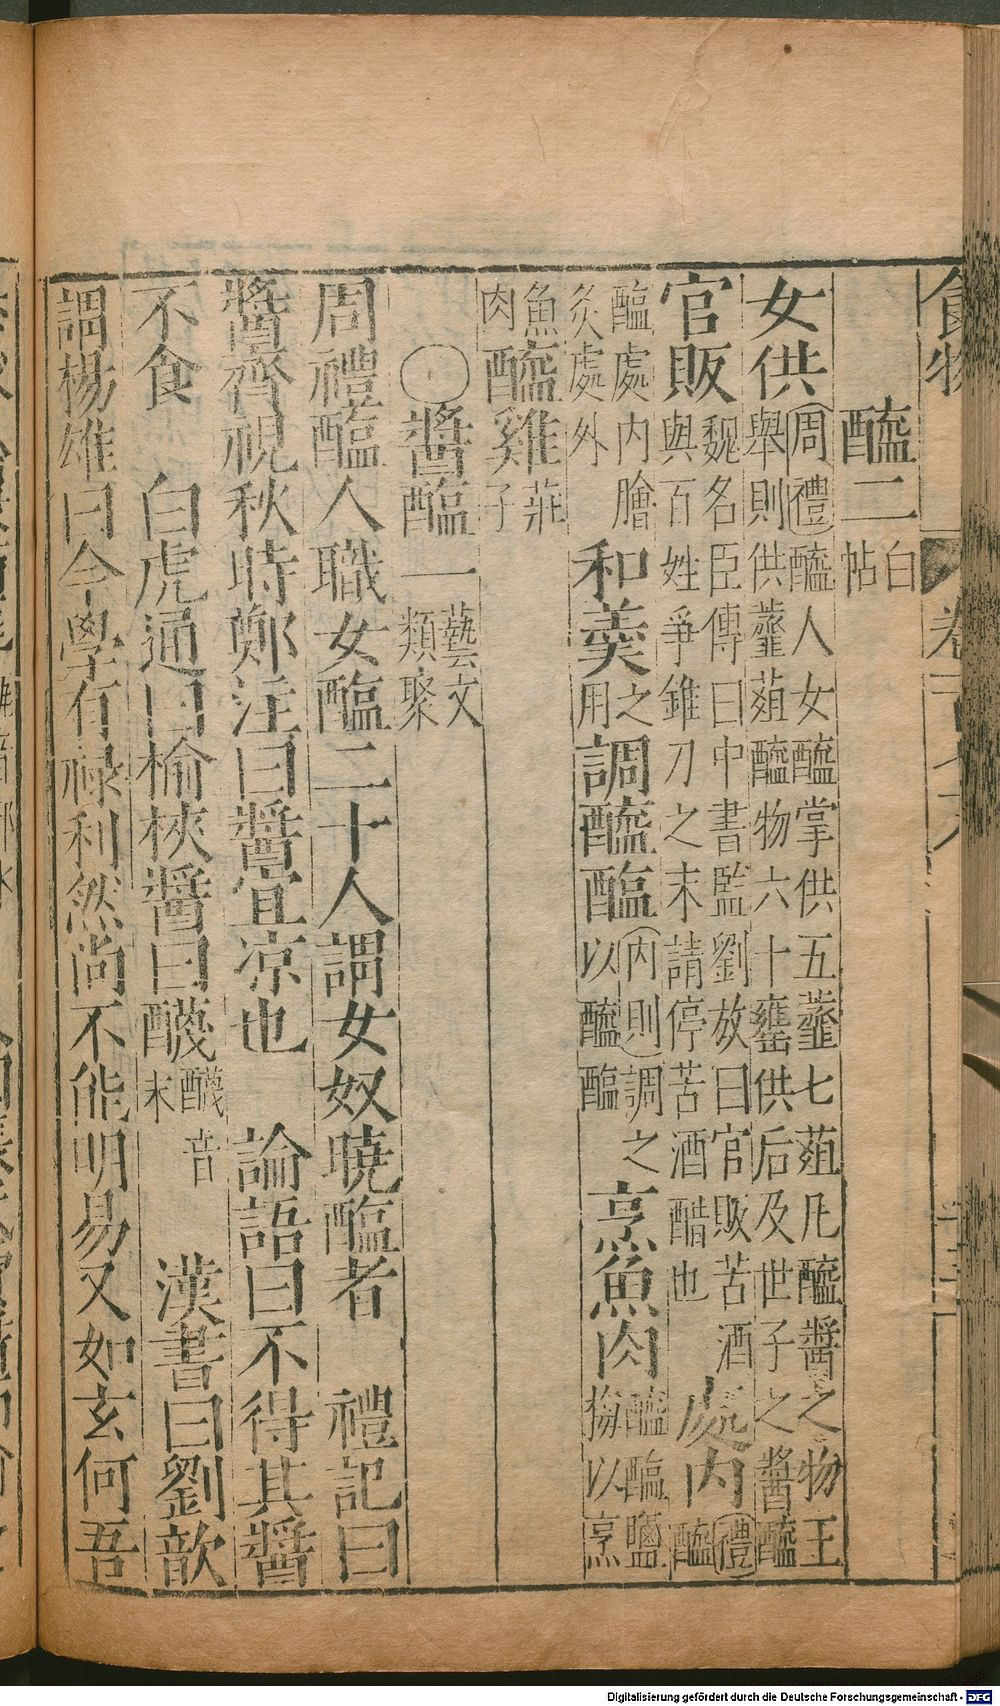 食物
醯二 白帖
女供 周禮醯人女醯掌供五虀七菹凡醯醬之物王舉則供虀菹醯物六十罋供后及世子之醬醯
官販 魏名臣傳曰中書監劉放曰官販苦酒與百姓爭錐刀之末請停苦酒醋也 處内 禮醯
醢處内膾炙處外 和羹 用之 調醯醢 内則調之以醯醢 烹魚肉 醯醢鹽梅以烹
魚肉 醯雞 莊子
○醬醢一 藝文類聚
周禮醢人職女醢二十人謂女奴曉醢者 禮記曰
醬齊視秋時鄭注曰醬宜凉也 論語曰不得其醬
不食 白虎通曰榆莢醬曰䤅 䤅音末 漢書曰劉歆
謂楊雄曰今學有禄利然尚不能明易又如玄何吾
Digitalisierung gefördert durch die Deutsche Forschungsgemeinschaft - DFG